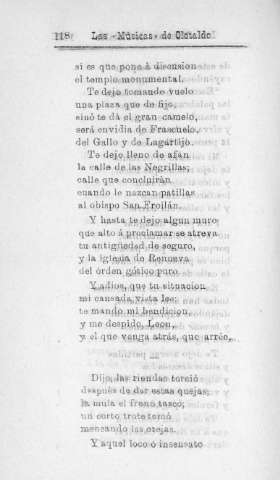 118 Las «Músicas» de Clotaldo
si es que pone á discusion
el templo monumental.
Te dejo tomando vuelo
una plaza que de fijo,
sinó te dá el gran camelo,
será envidia de Frascuelo,
del Gallo y de Lagartijo.
Te dejo lleno de afan
la calle de las Negrillas;
calle que concluirán
cuando le nazcan patillas
al obispo San Froilán.
Y hasta te dejo algun muro
que alto á proclamar se atreva
tu antigüedad de seguro,
y la iglesia de Renueva
del órden gósico puro.
Y adios, que tu situacion
mi cansada vista lee;
te mando mi bendicion,
y me despido, Leon,
y el que venga atrás, que arrée.
Dijo, las riendas torció
despues de dar estas quejas;
la mula el freno tascó;
un corto trote tomó
meneando las orejas.
Y aquel loco ó insensato